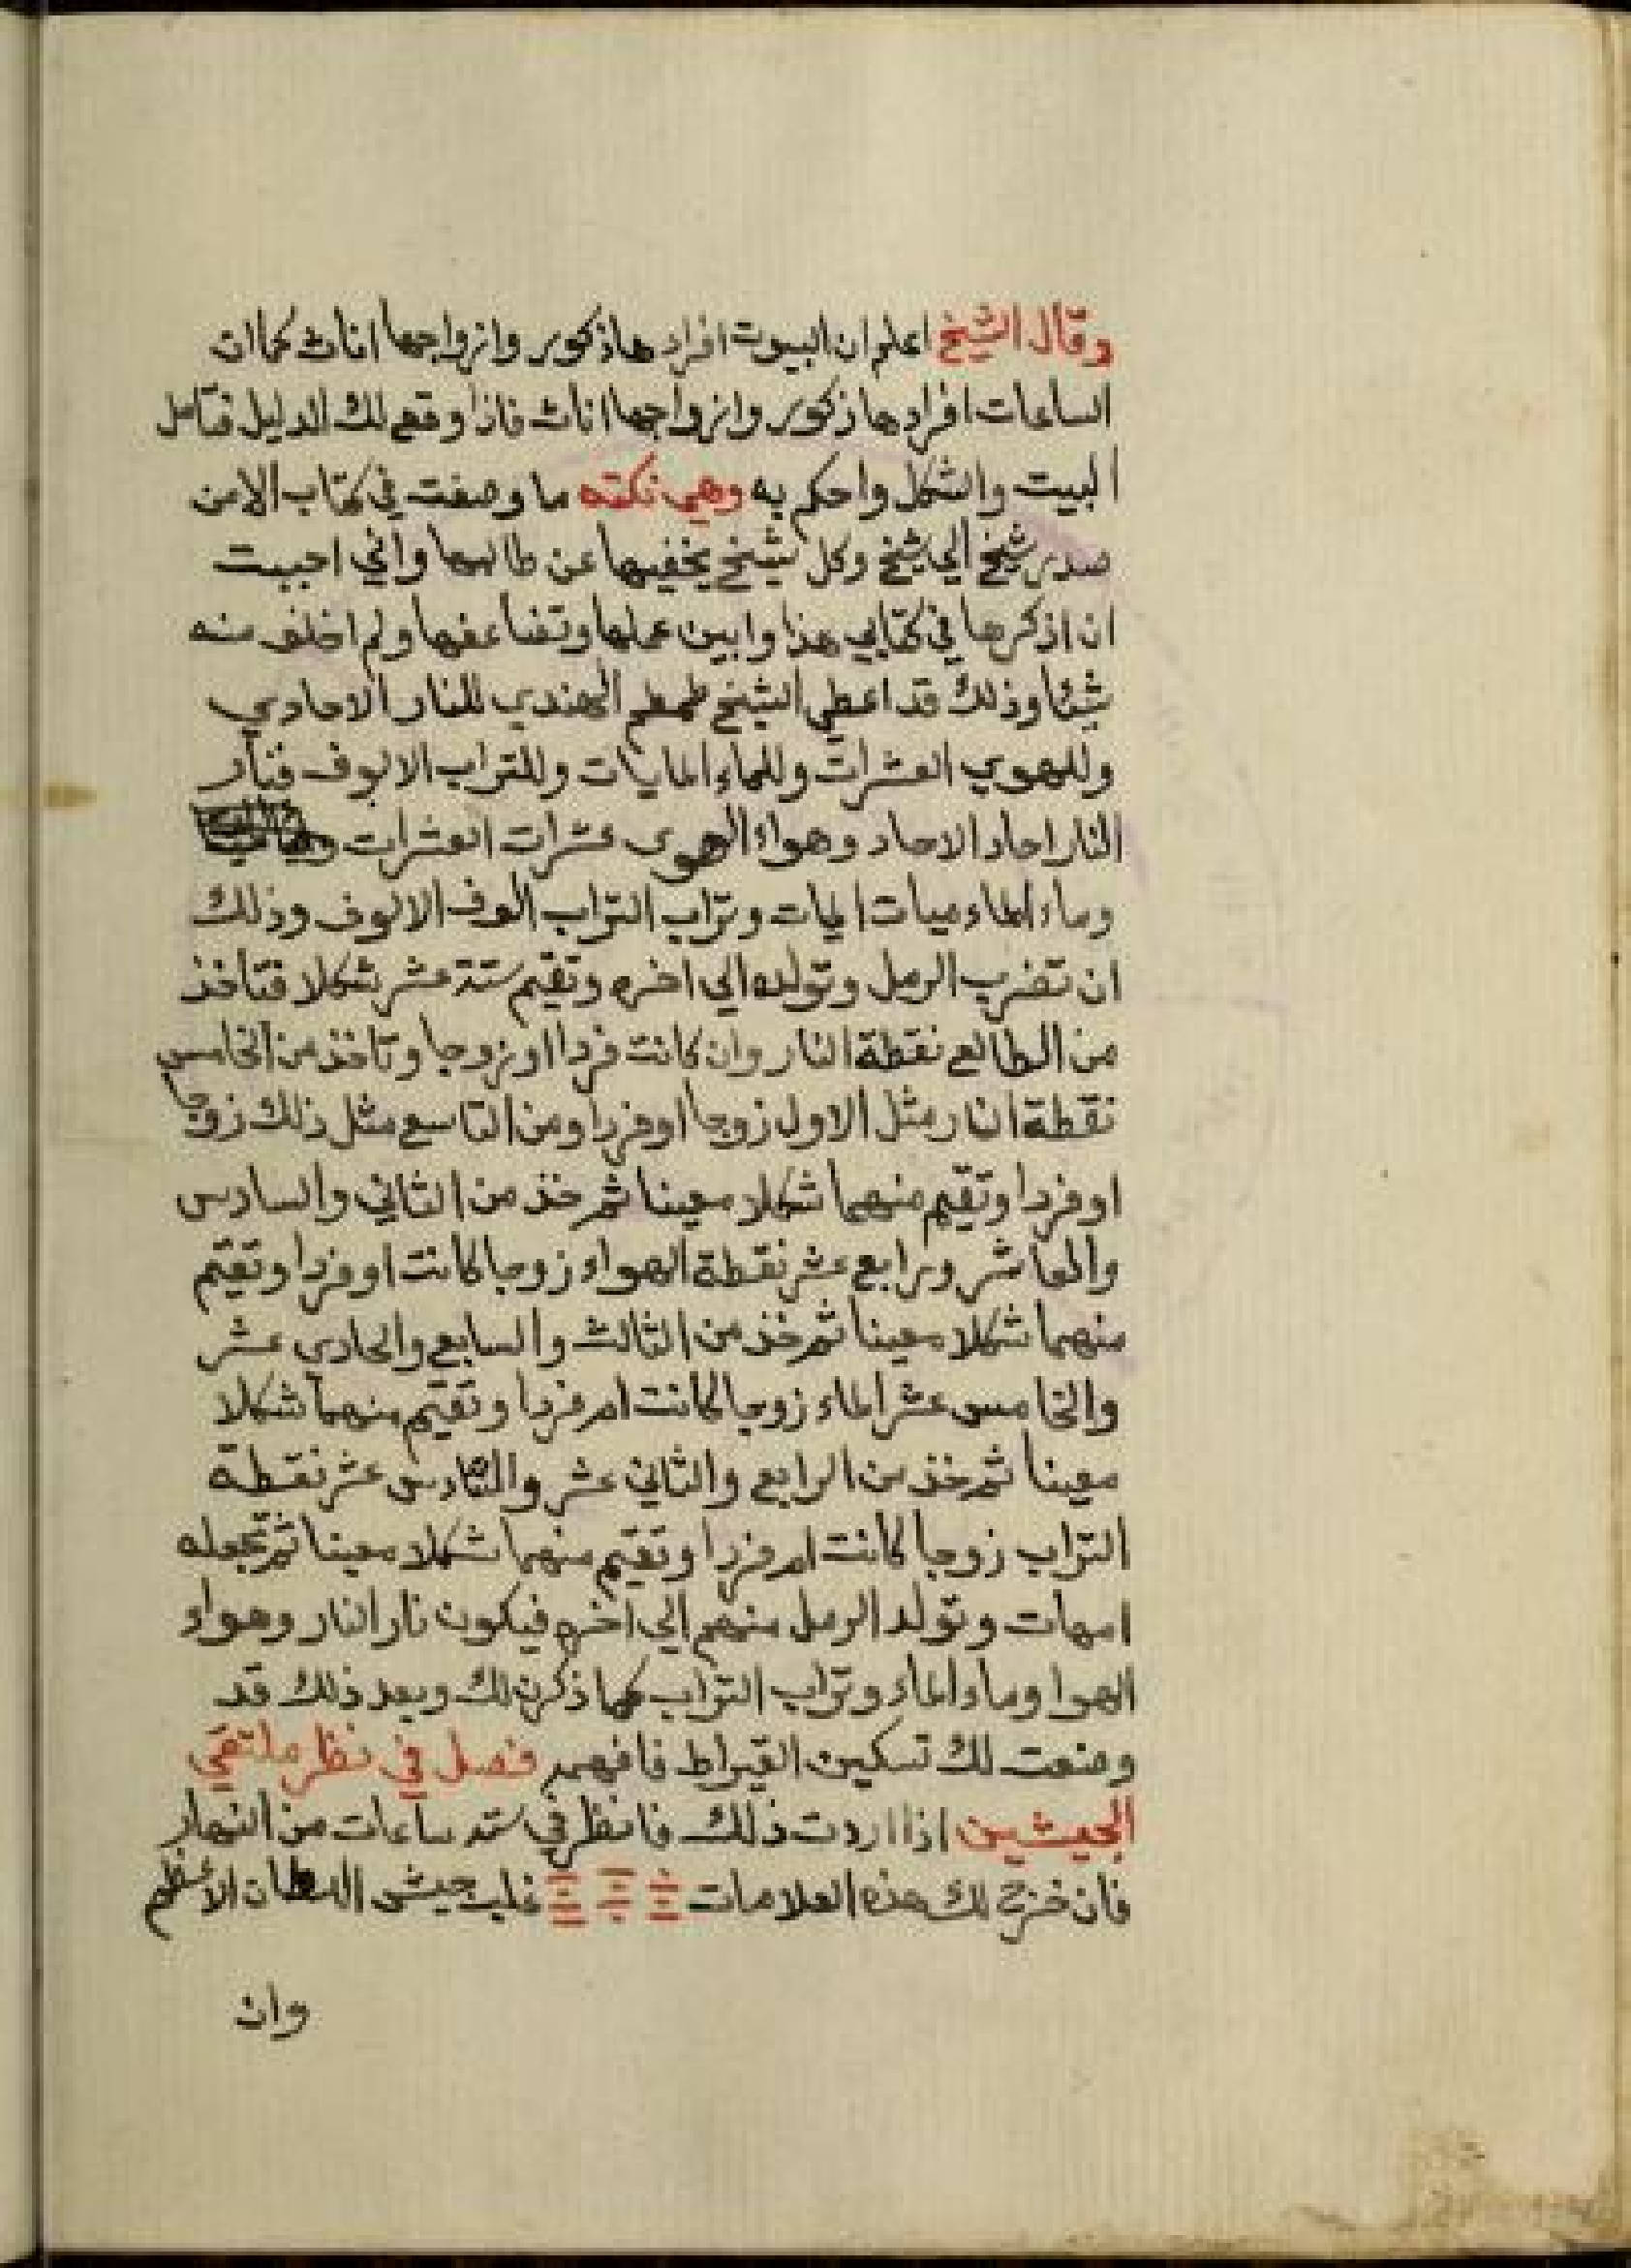 وقال الشيخ اعلم ان البيوت افرادها ذكور وازواجها اناث كما ان
الساعات افرادها ذكور وازواجها اناث فاذا وقع لك الدليل فتامل
البيت والشكل واحكم به وهي نكته ما وصفت في كتاب الا من
صدر شيخ الي شيخ وكل شيخ يخفيها عن طالبها واني احببت
ان اذكرها في كتابي هذا وابين عملها وتضاعفها ولم اخلف منه
شيئا وذلك قد اعطي الشيخ طمطم الهندي للنار الاحادي
وللهوي العشرات وللماء المايات وللتراب الالوف فنار
النار احاد الاحاد وهواء الهوى عشرات العشرات
وماء الماء ميات المات وتراب التراب الوف الالوف وذلك
ان تضرب الرمل وتولده الي اخره وتقيم ستة عشر شكلا فتاخذ
من الطالع نقطة النار وان كانت فردا او زوجا وتاخذ من الخامس
نقطة النار مثل الاول زوجا او فردا ومن التاسع مثل ذلك زوجا
او فردا وتقيم منهما شكلا معينا ثم خذ من الثاني والسادس
والعاشر ورابع عشر نقطة الهواء زوجا كانت او فردا وتقيم
منهما شكلا معينا ثم خذ من الثالث والسابع والحادى عشر
والخامس عشر الماء زوجا كانت ام فردا وتقيم منهما شكلا
معينا ثم خذ من الرابع والثاني عشر والسادس عشر نقطة
التراب زوجا كانت ام فردا وتقيم منهما شكلا معينا ثم تجعله
امهات وتولد الرمل منهم الي اخره فيكون نار النار وهواء
الهوا وماء الماء وتراب التراب كما ذكرت لك وبعد ذلك قد
وضعت لك تسكين القيراط فافهم فصل في نظر ملتقي
الجيشين اذا اردت ذلك فانظر في ستة ساعات من النهار
فان خرج لك هذه العلامات غلب جيش السلطان الاعظم
وان